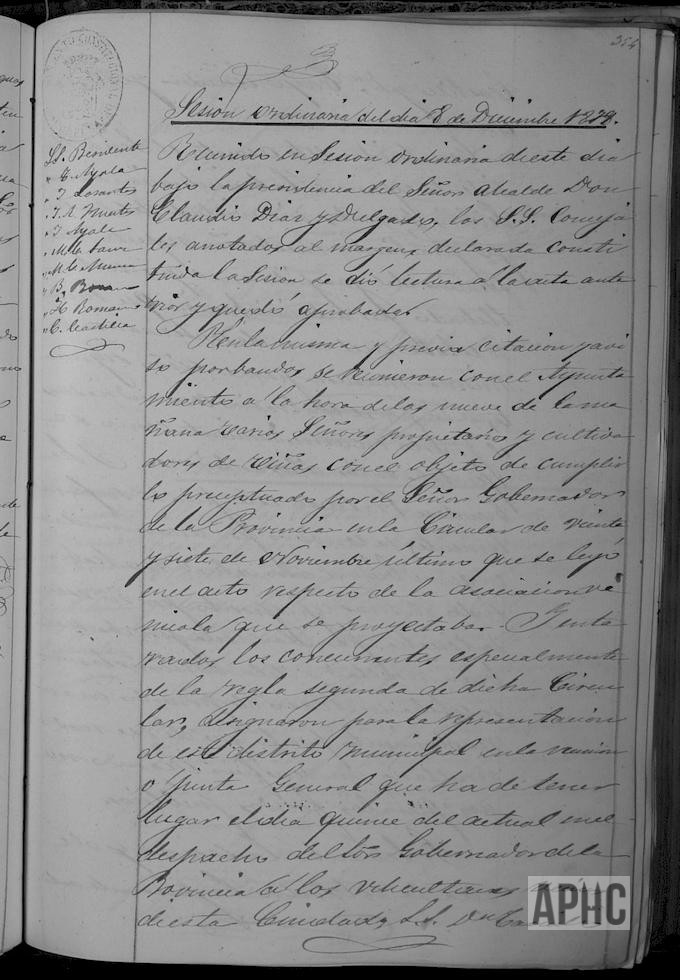 354
Sesion ordinaria del dia 8 de Diciembre 1878.
SS. Presidente
" E. Ayala
" J. Lorantes
" J. A.
" J. Ayala
" M. de
" M. de
" B. Roman
" H. Romano
" C.
Reunido en Sesion ordinaria de este dia
bajo la presidencia del Señor Alcalde Don
Claudio Diaz y Delgado, los S.S. Conceja
les anotados al margen, declarada consti
tuida la Sesion se dió lectura á la acta ante
rior y quedó aprobada.
En la misma y previa citacion y avi
so por bandos se reunieron con el Ayunta
miento á la hora de las nueve de la ma
ñana varios Señores propietarios y cultiva
dores de viñas con el objeto de cumplir
lo preceptuado por el Señor Gobernador
de la Provincia en la Circular de veinte
y siete de Noviembre último que se leyó
en el acto respecto de la asociacion vi
nicola que se proyectaba. Y ente
rados los concurrentes especialmente
de la regla segunda de dicha Circu
lar, designaron para la representacion
de este distrito municipal en la reunion
ó Junta General que ha de tener
lugar el dia quince del actual en el
despacho del Sor Gobernador de la
Provincia á los viticultores
de esta Ciudad, SS. Dn
APHC